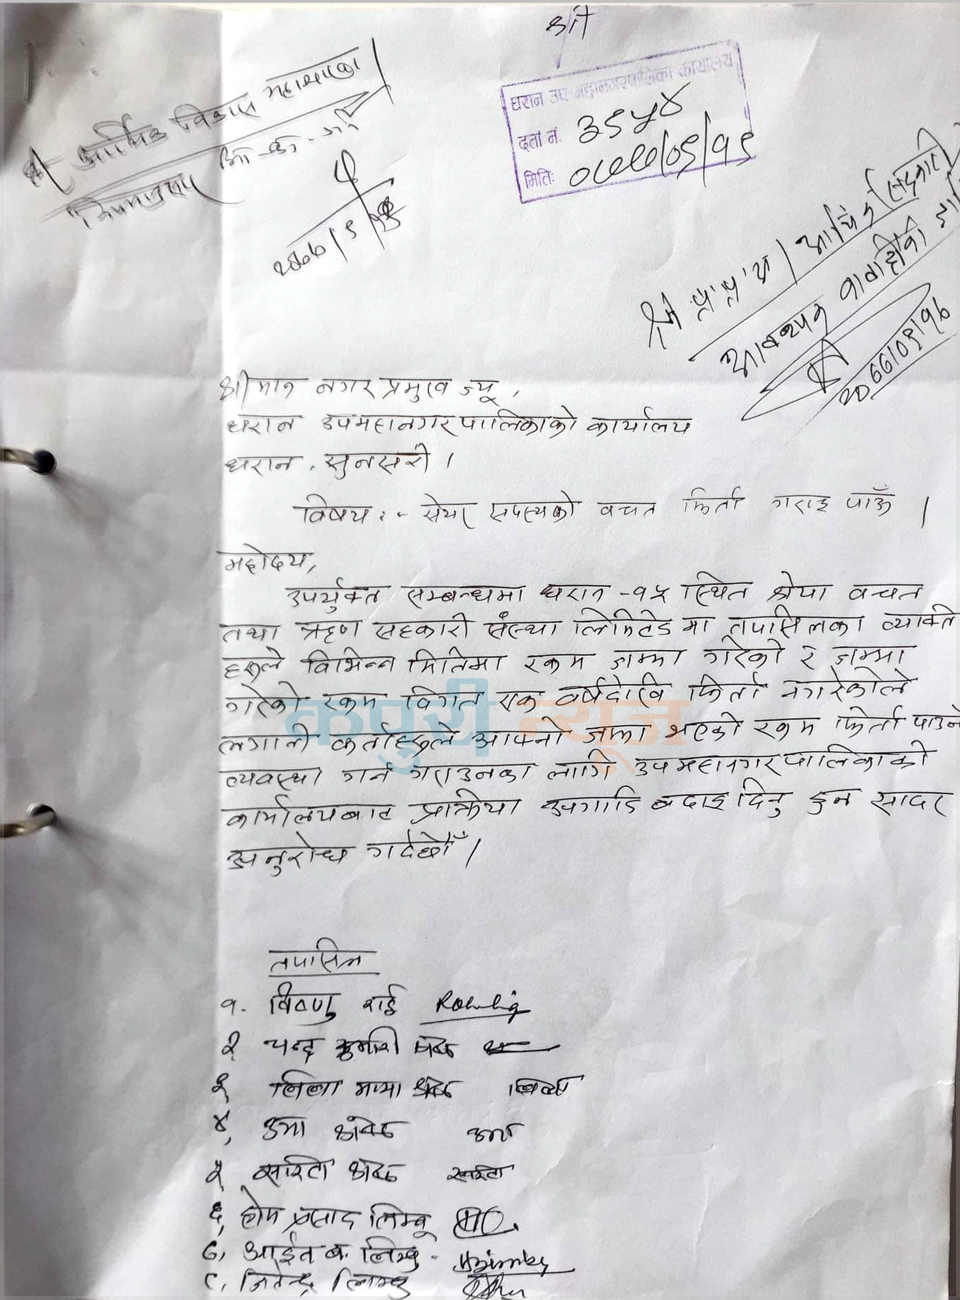 श्री
श्री आर्थिक विकास महाशाखा
२०७७/९/१६
धरान उप-महानगरपालिका कार्यालय
दर्ता नं.
मितिः
श्री प्र.प्र.अ / आर्थिक
आवश्यक कारवाहीको
२०७७/०९/१६
श्रीमान नगर प्रमुख ज्यू,
धरान उपमहानगरपालिकाको कार्यालय
धरान, सुनसरी ।
विषय :- सेयर सदस्यको बचत फिर्ता गराइ पाऊँ ।
महोदय,
उपर्युक्त सम्बन्धमा धरान -१५ स्थित श्रेया बचत
तथा ऋृण सहकारी संस्था लिमिटेडमा तपासिलका व्याक्ति
हरूले विभिन्न मितिमा रकम जम्मा गरेको र जम्मा
गरेको रकम विगत एक वर्षदेखि फिर्ता नगरेकोले
लगानी कर्ताहरूले आफ्नो जम्मा भएको रकम फिर्ता पाउने
व्यवस्था गर्न गराउनका लागि उपमहानगरपालिकाको
कार्यालयबाट प्राक्रिया अगाडि बढाइ दिनु हुन सादर
अनुरोध गर्दछौं ।
कपुरी न्यूज
तपासिल
१. विष्णु राई
२ चन्द्र कुमारी
३ लिला माया
४, उमा
५ सरिता सरिता
६, होम प्रसाद लिम्बू
७, आईत ब. लिम्बु
८, जितेन्द्र लिम्बु